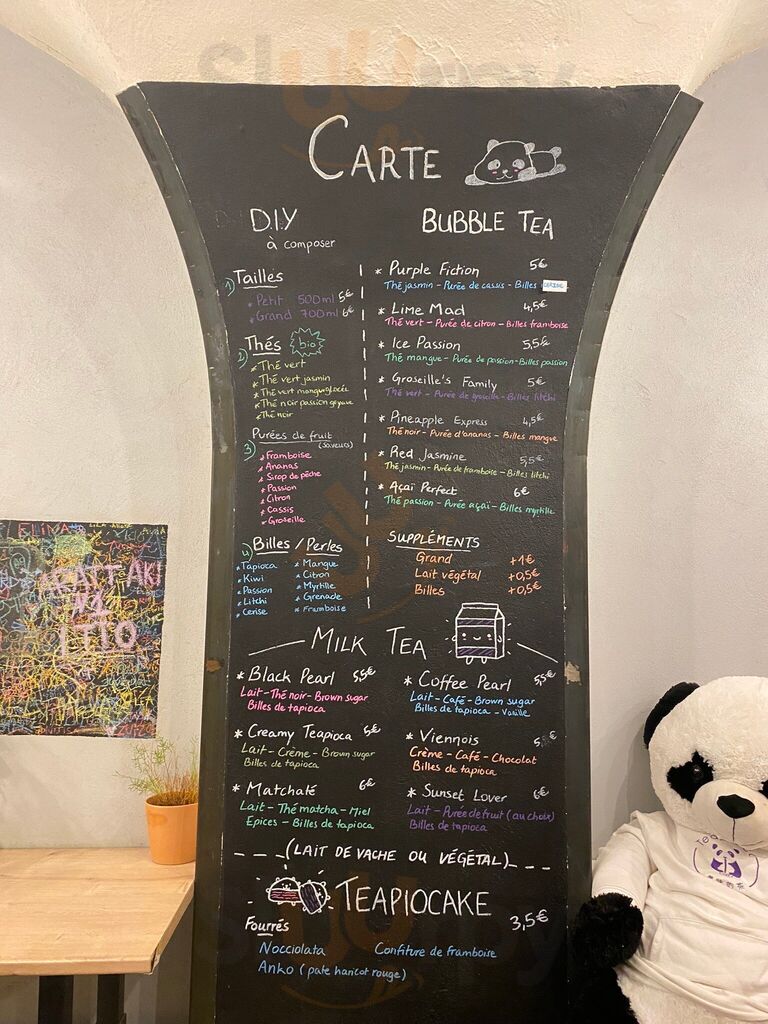 CARTE
D.I.Y
à composer
1) Tailles
* Petit 500ml 5€
* Grand 700ml 6€
2) Thés bio
* Thé vert
* Thé vert jasmin
* Thé vert mangue glacée
* Thé noir passion goyave
* Thé noir
3) Purées de fruit
(saveurs)
* Framboise
* Ananas
* Sirop de pêche
* Passion
* Citron
* Cassis
* Groseille
4) Billes / Perles
* Tapioca * Mangue
* Kiwi * Citron
* Passion * Myrtille
* Litchi * Grenade
* Cerise * Framboise
BUBBLE TEA
* Purple Fiction 5€
Thé jasmin - Purée de cassis - Billes CERISE
* Lime Mad 4,5€
Thé vert - Purée de citron - Billes framboise
* Ice Passion 5,5€
Thé mangue - Purée de passion - Billes passion
* Groseille's Family 5€
Thé vert - Purée de groseille - Billes litchi
* Pineapple Express 4,5€
Thé noir - Purée d'ananas - Billes mangue
* Red Jasmine 5,5€
Thé jasmin - Purée de framboise - Billes litchi
* Açaï Perfect 6€
Thé passion - Purée açaï - Billes myrtille
SUPPLÉMENTS
Grand +1€
Lait végétal +0,5€
Billes +0,5€
MILK TEA
* Black Pearl 5,5€
Lait - Thé noir - Brown sugar
Billes de tapioca
* Creamy Teapioca 5€
Lait - Crème - Brown sugar
Billes de tapioca
* Matchaté 6€
Lait - Thé matcha - Miel
Epices - Billes de tapioca
* Coffee Pearl 5,5€
Lait - Café - Brown sugar
Billes de tapioca - Vanille
* Viennois
Crème - Café - Chocolat
Billes de tapioca
* Sunset Lover 6€
Lait - Purée de fruit (au choix)
Billes de tapioca
(LAIT DE VACHE OU VÉGÉTAL)
TEAPIOCAKE 3,5€
Fourrés
Nocciolata Confiture de framboise
Anko (pate haricot rouge)